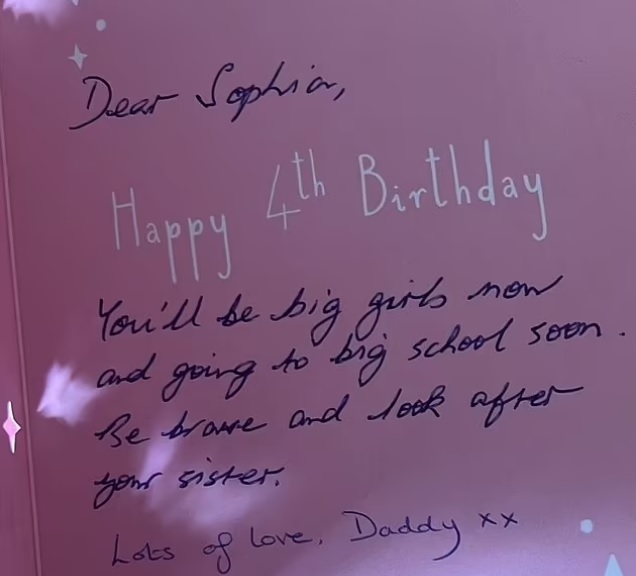 Dear Sophia,
Happy 4th Birthday
You'll be big girls now
and going to big school soon.
Be brave and look after
your sister.
Lots of love, Daddy xx